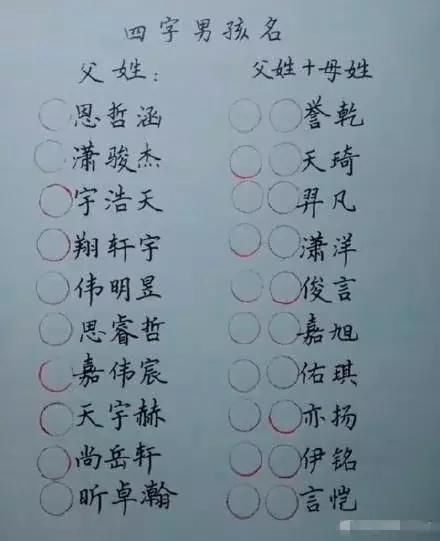 四字男孩名
父姓： 父姓+母姓
恩哲涵 誉乾
潇骏杰 天琦
宇浩天 羿凡
翔轩宇 潇洋
伟明昱 俊言
思睿哲 嘉旭
嘉伟宸 佑琪
天宇赫 亦扬
尚岳轩 伊铭
昕卓瀚 言恺